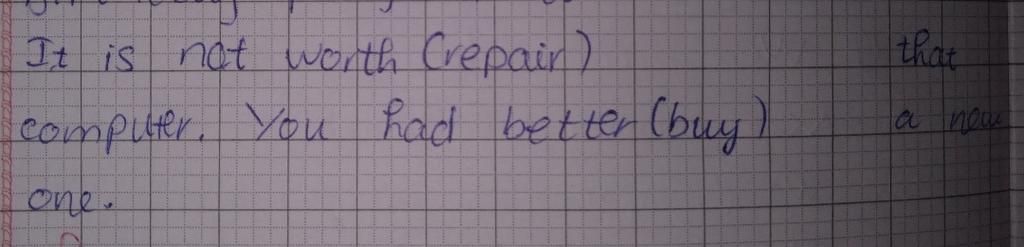 It is not worth (repair) that
computer. You had better (buy) a new
one.